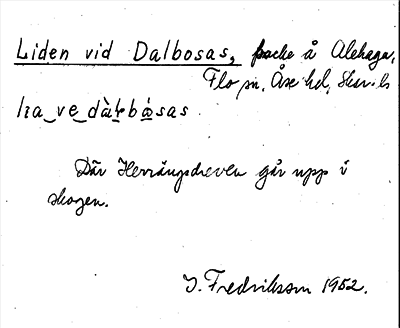 Liden vid Dalbosas, backe å Alehagen,
Flo sn, Åse hd, Skar. l.
lia ve dàɫbǻsas.
Där Herrängsdreven går upp i
skogen.
J. Fredriksson 1952.